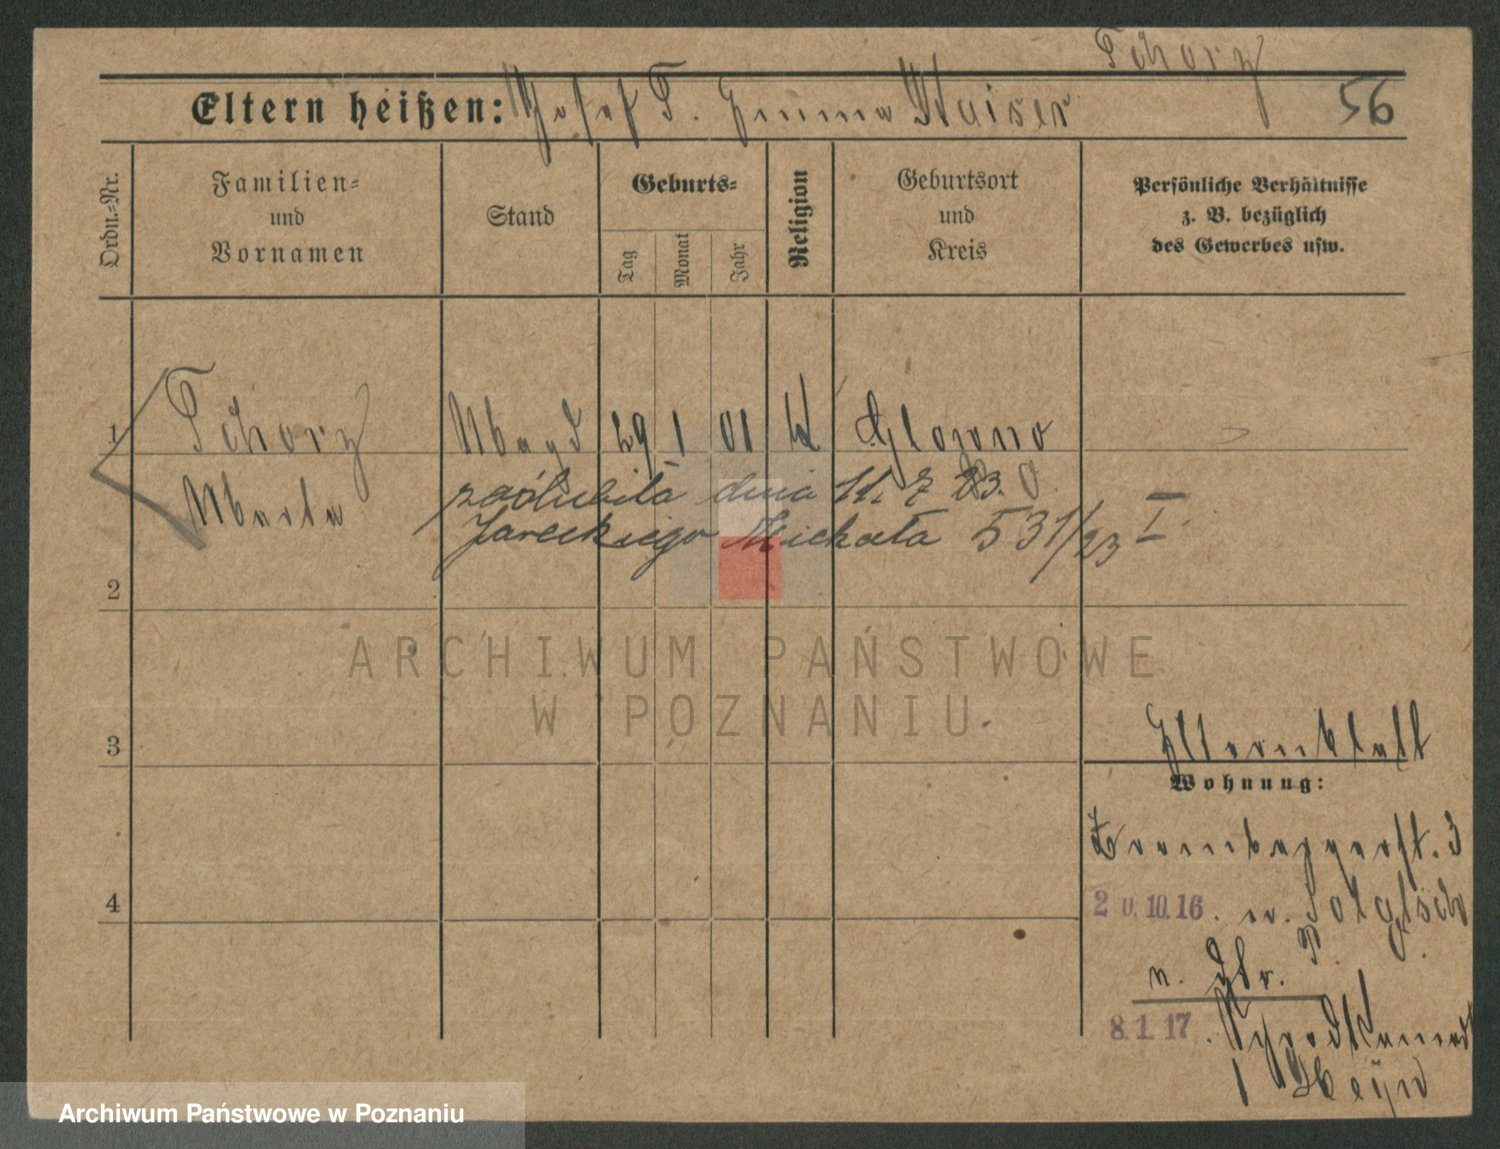 Tchorz
Eltern heißen: Josef T. Emma Kaiser
56
Ordn.-Nr.
Familien-
und
Vornamen
Stand
Geburts-
Tag
Monat
Jahr
Religion
Geburtsort
und
Kreis
Persönliche Verhältnisse
z. B. bezüglich
des Gewerbes usw.
1 Tchorz Magd 29 1 01 k Glowno
Marta
P. O.
zaślubiła dnia 11. 7 23.
Jareckiego Michała 531/23 I
2
3
Elternblatt
Wohnung:
Brombergerst. 3
4
20.10.16. n.
n. Gbr.
8.1.17.
ARCHIWUM PAŃSTWOWE
W POZNANIU
Archiwum Państwowe w Poznaniu